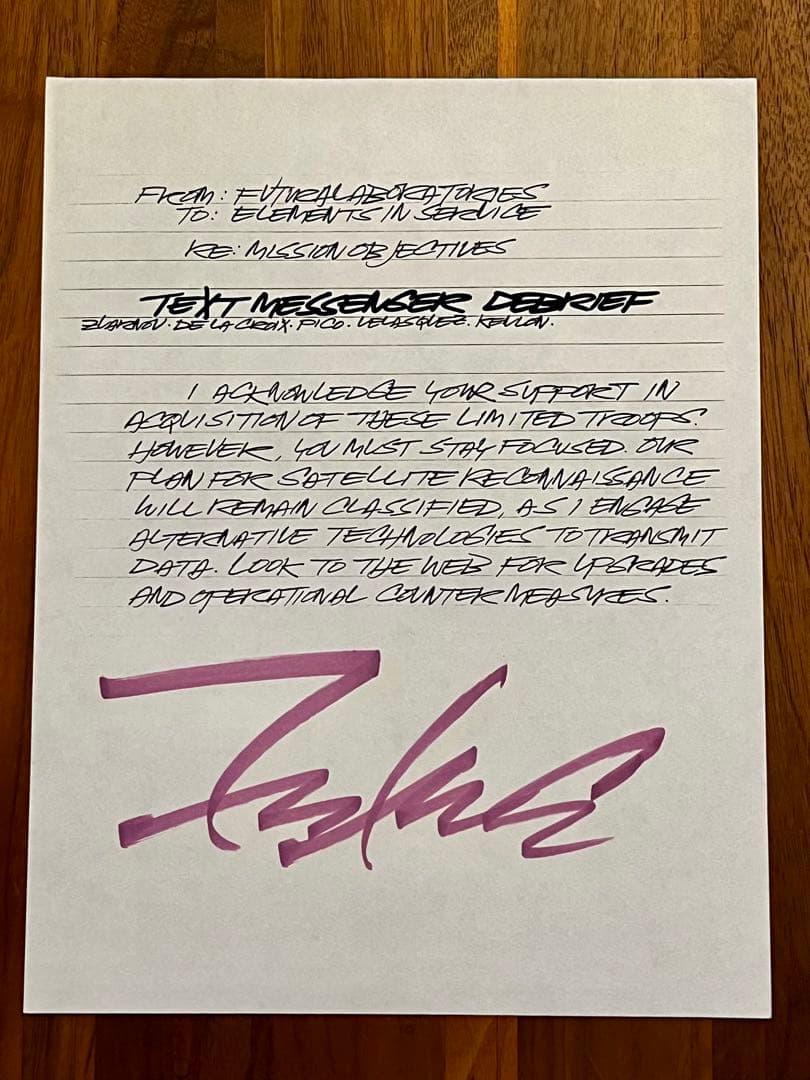 FROM: FUTURALABORATORIES
TO: ELEMENTS IN SERVICE
RE: MISSION OBJECTIVES
TEXT MESSENGER DEBRIEF
ZHARNOV. DE LA CROIX. PICO. VELASQUEZ. KELLON.
I ACKNOWLEDGE YOUR SUPPORT IN
ACQUISITION OF THESE LIMITED TROOPS.
HOWEVER, YOU MUST STAY FOCUSED. OUR
PLAN FOR SATELLITE RECONNAISSANCE
WILL REMAIN CLASSIFIED, AS I ENGAGE
ALTERNATIVE TECHNOLOGIES TO TRANSMIT
DATA. LOOK TO THE WEB FOR UPGRADES
AND OPERATIONAL COUNTER MEASURES.
Futura